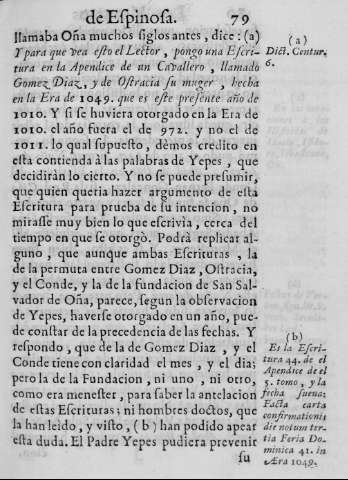 de Espinosa. 79
llamaba Oña muchos siglos antes, dice: (a)
Y para que vea esto el Lector, pongo una Escri-
tura en la Apendice de un Cavallero, llamado
Gomez Diaz, y de Ostracia su muger, hecha
en la Era de 1049. que es este presente año de
1010. Y si se huviera otorgado en la Era de
1010. el año fuera el de 972. y no el de
1011. lo qual supuesto, dèmos credito en
esta contienda à las palabras de Yepes, que
decidiràn lo cierto. Y no se puede presumir,
que quien queria hazer argumento de esta
Escritura para prueba de su intencion, no
mirasse muy bien lo que escrivìa, cerca del
tiempo en que se otorgò. Podrà replicar al-
guno, que aunque ambas Escrituras, la
de la permuta entre Gomez Diaz, Ostracia,
y el Conde, y la de la fundacion de San Sal-
vador de Oña, parece, segun la observacion
de Yepes, haverse otorgado en un año, pue-
de constar de la precedencia de las fechas. Y
respondo, que de la de Gomez Diaz, y el
Conde tiene con claridad el mes, y el dia;
pero la de la Fundacion, ni uno, ni otro,
como era menester, para saber la antelacion
de estas Escrituras; ni hombres doctos, que
la han leìdo, y visto, (b) han podido apear
esta duda. El Padre Yepes pudiera prevenir
su
(a)
Dict. Centur.
6.
(b)
Es la Escri-
tura 44. de el
Apendice de el
5. tomo, y la
fecha suena:
Facta carta
confirmationis
die notum ter-
tia Feria Do-
minica 41. in
Æra 1049.